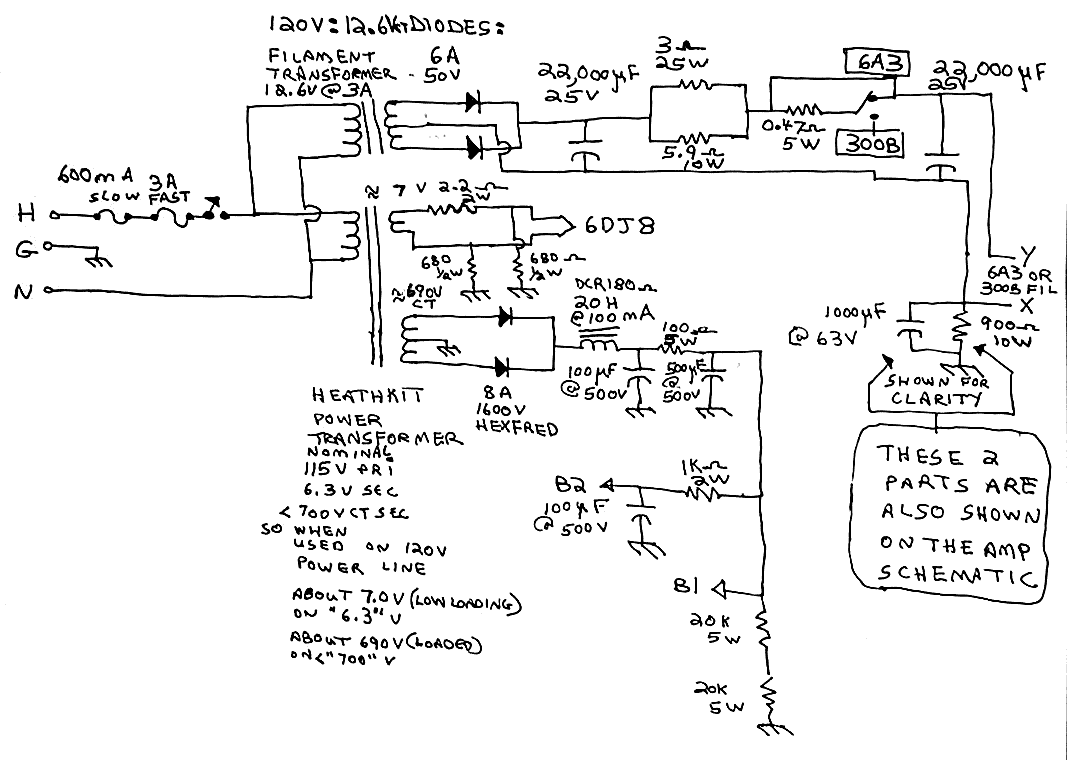 120V:12.6V CT DIODES:
FILAMENT 6A
TRANSFORMER - 50V
12.6V @ 3A
22,000µF
25V
3Ω
25W
5.9Ω
10W
0.47Ω
5W
6A3
300B
22,000µF
25V
600mA
SLOW
3A
FAST
H
G
N
≈ 7V
2.2Ω
2W
6DJ8
680
½W
680Ω
½W
Y
6A3 OR
300B FIL
X
≈690V
CT
DCR180Ω
20H
@100MA
100Ω
5W
100µF
@500V
500µF
@500V
8A
1600V
HEXFRED
1000µF
@ 63V
900Ω
10W
SHOWN FOR
CLARITY
THESE 2
PARTS ARE
ALSO SHOWN
ON THE AMP
SCHEMATIC
HEATHKIT
POWER
TRANSFORMER
NOMINAL
115V PRI
6.3V SEC
< 700VCT SEC
SO WHEN
USED ON 120V
POWER LINE
ABOUT 7.0V (LOW LOADING)
ON "6.3" V
ABOUT 690V (LOADED)
ON <"700" V
1KΩ
2W
B2
100µF
@500V
B1
20K
5W
20K
5W